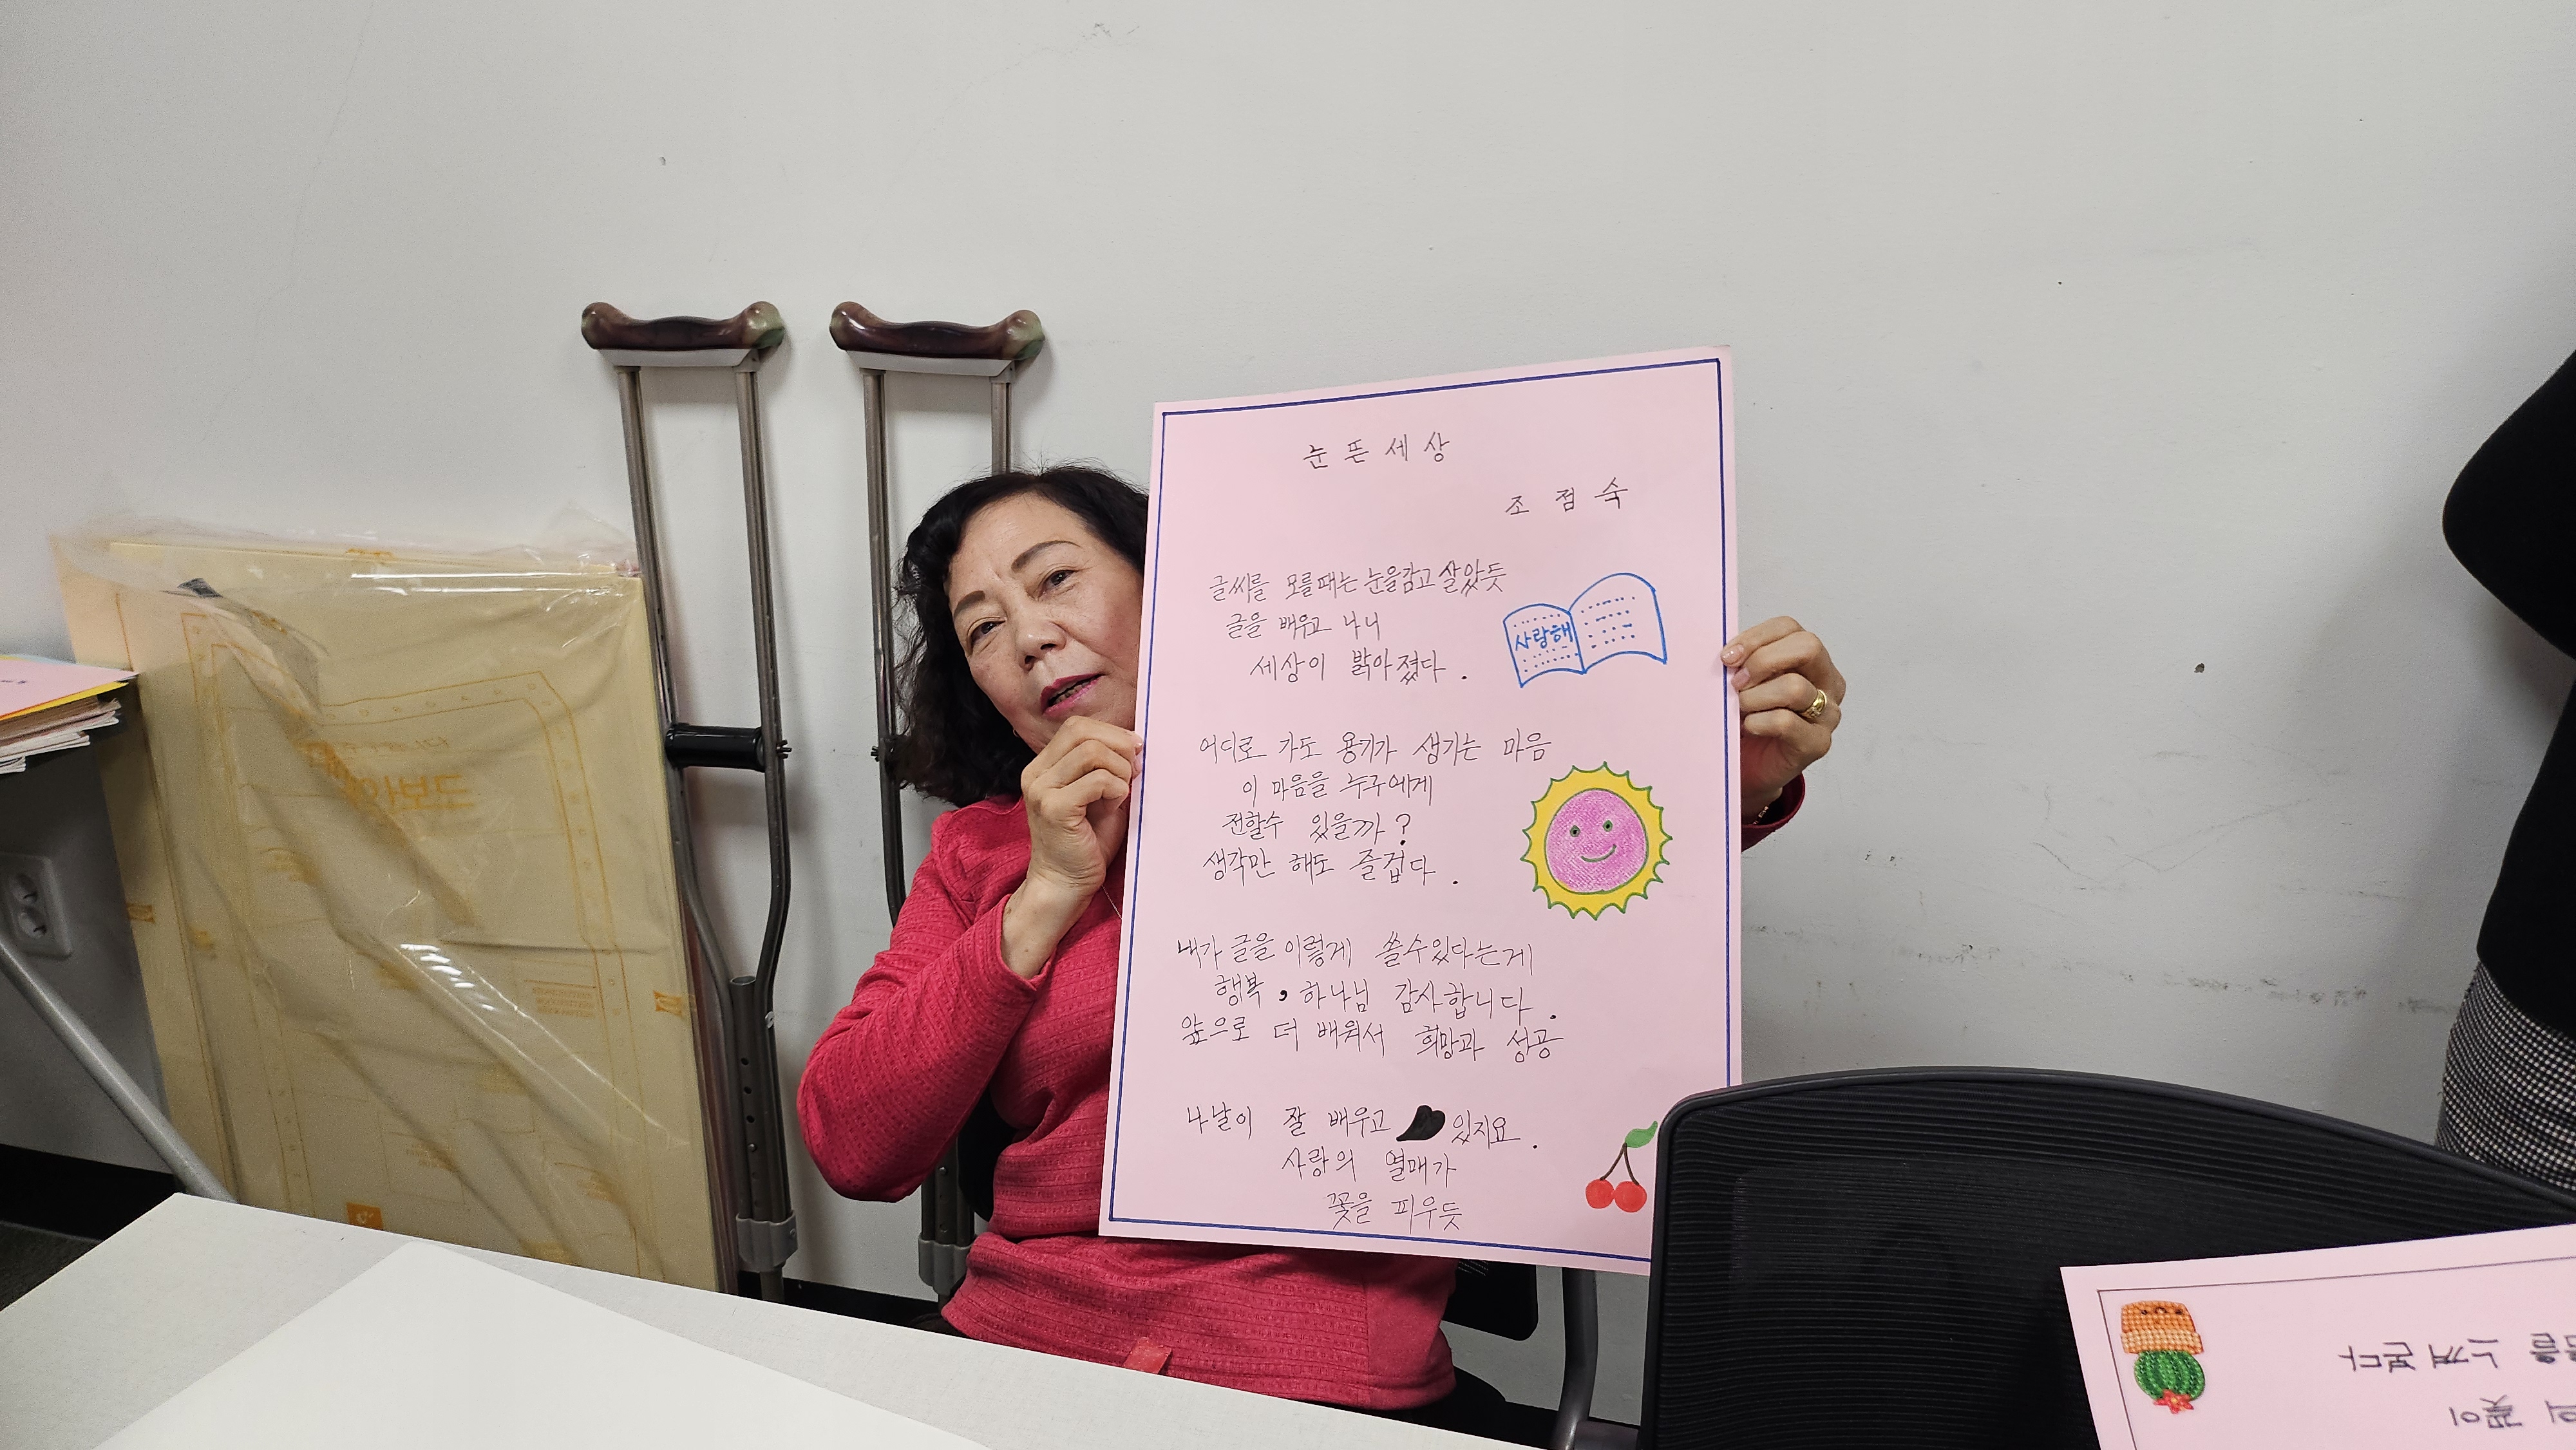 눈 뜬 세 상
조 점 숙
글씨를 모를때는 눈을감고 살았듯
글을 배우고 나니
세상이 밝아졌다.
사랑해
어디로 가도 용기가 생기는 마음
이 마음을 누구에게
전할수 있을까?
생각만 해도 즐겁다.
내가 글을 이렇게 쓸수있다는게
행복, 하나님 감사합니다.
앞으로 더 배워서 희망과 성공
나날이 잘 배우고 있지요.
사랑의 열매가
꽃을 피우듯
느껴본다
꽃이